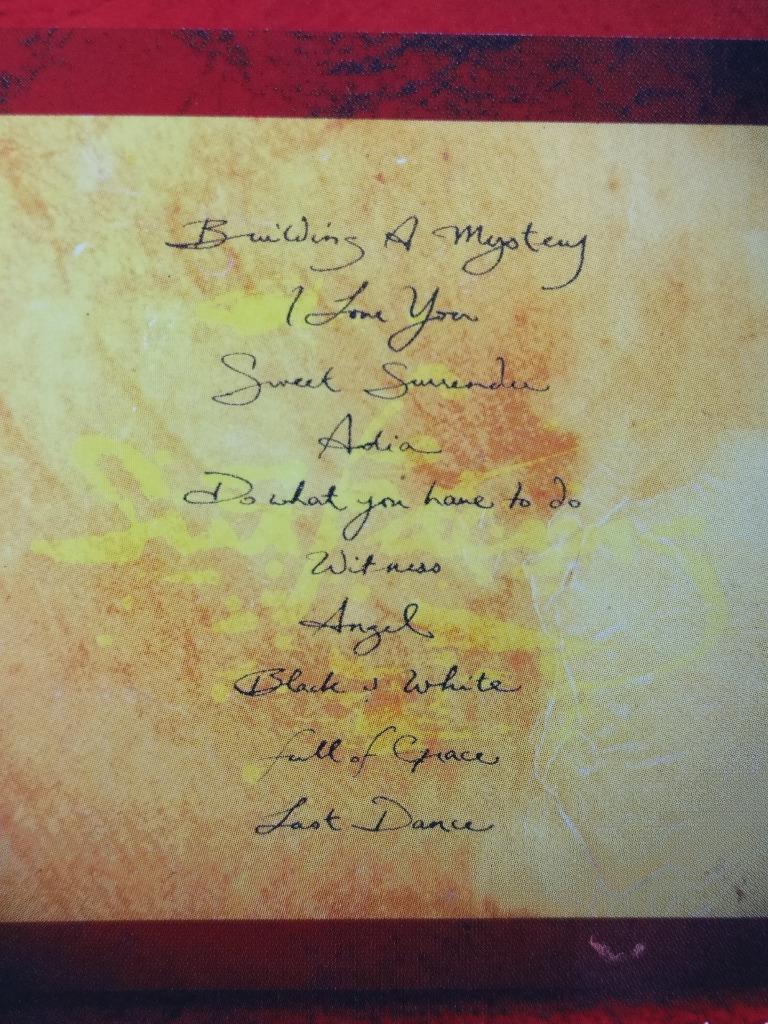 Building A Mystery
I Love You
Sweet Surrender
Adia
Do what you have to do
Witness
Angel
Black & White
full of Grace
Last Dance